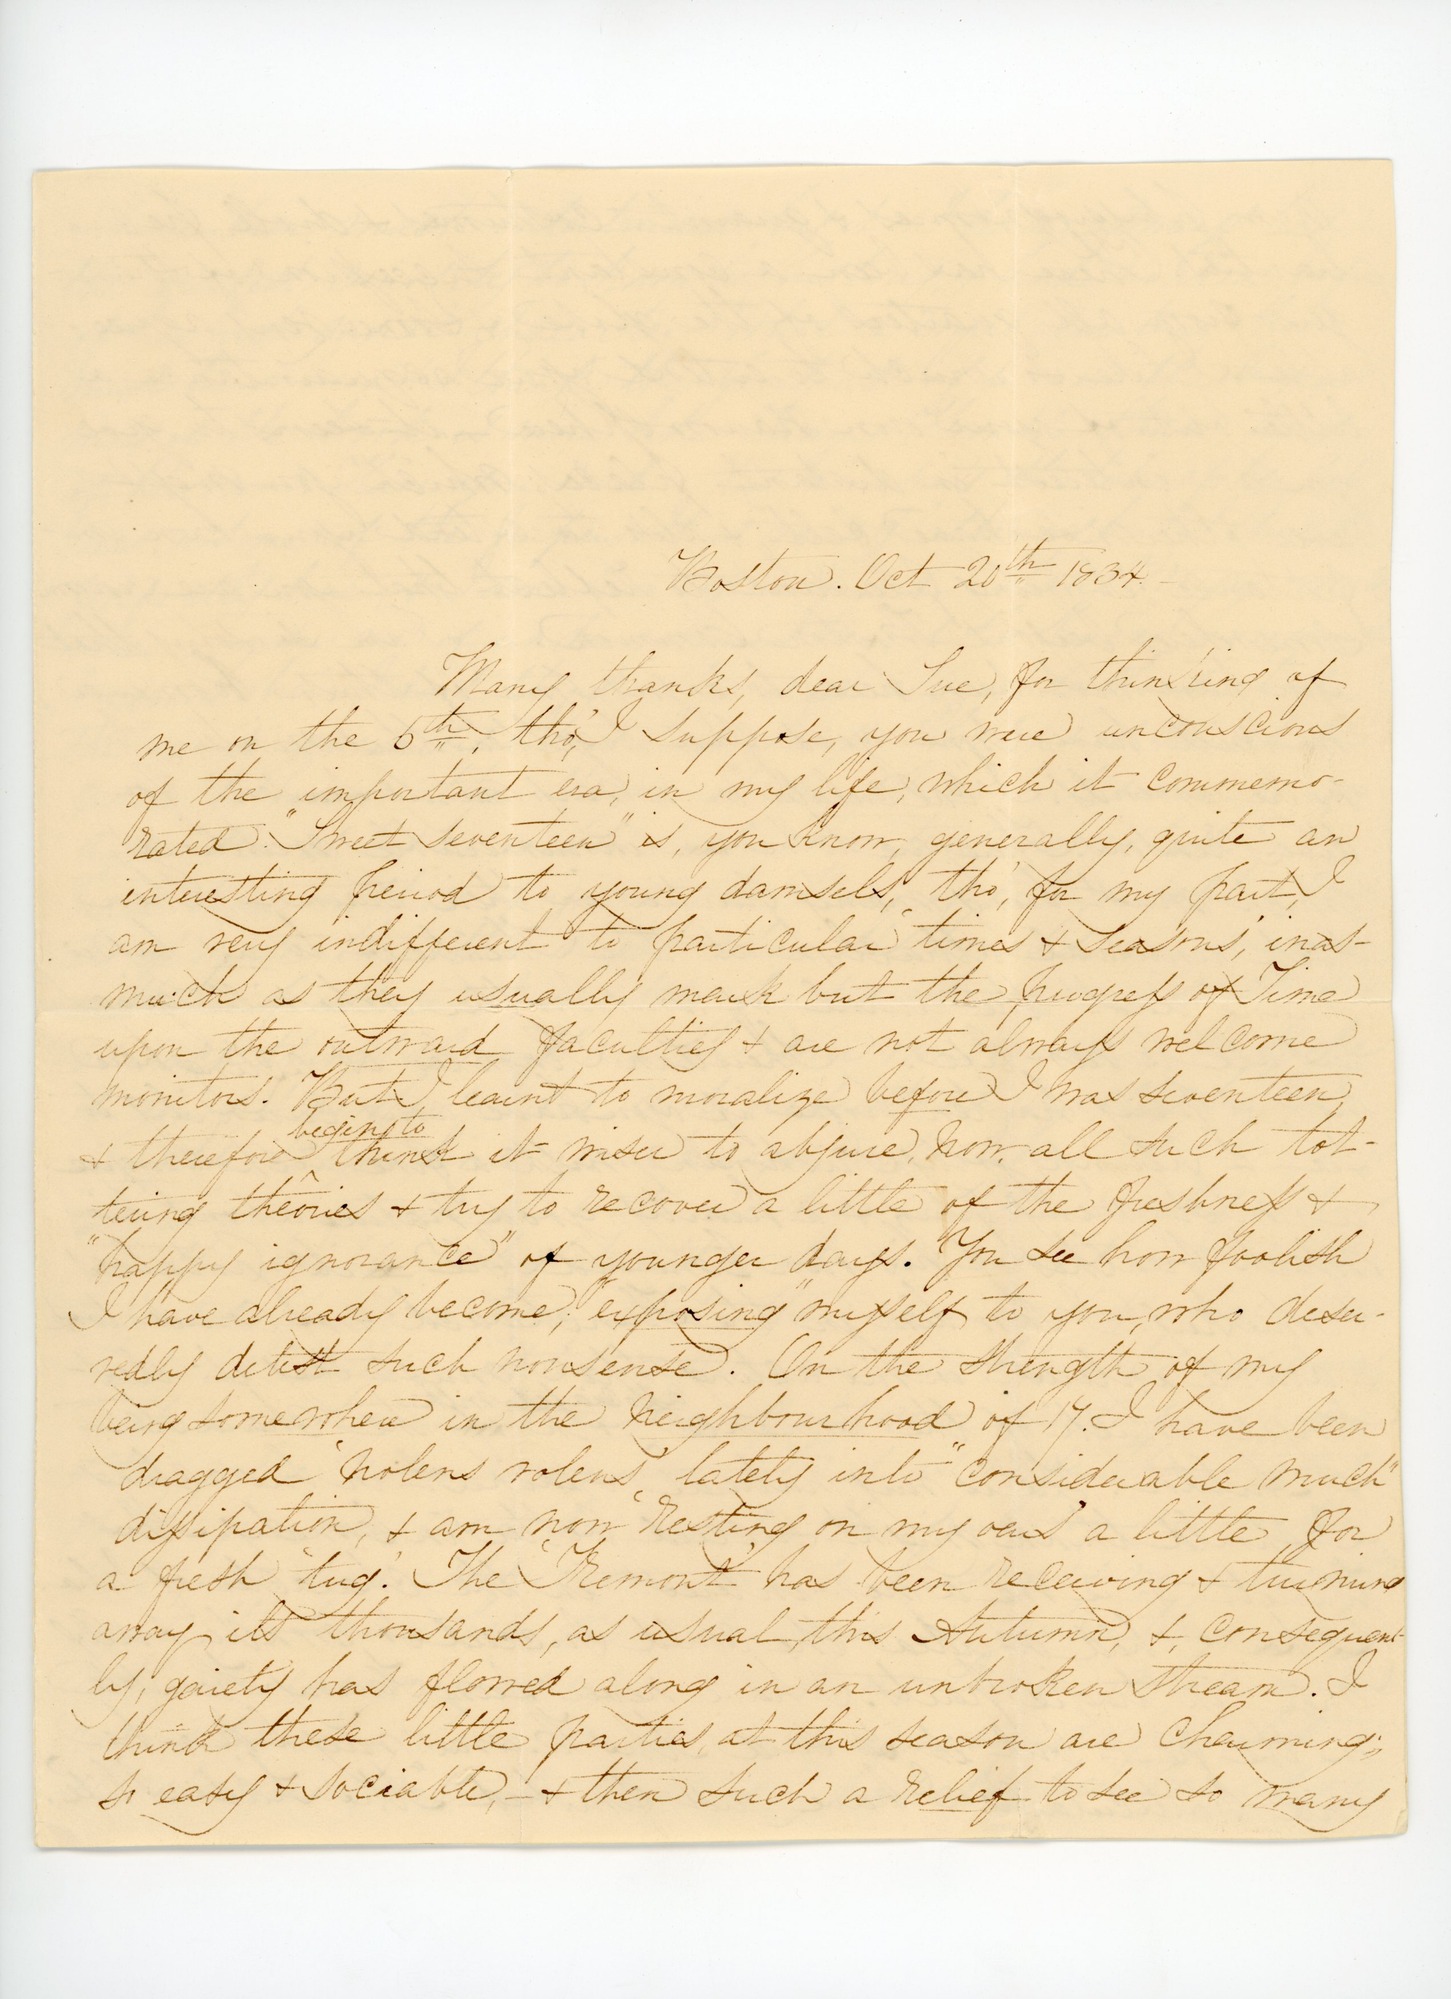 Boston. Oct 20th 1834.
Many thanks, dear Sue, for thinking of
me on the 5th, tho', I suppose, you were unconscious
of the important era, in my life, which it commemo-
rated. "Sweet seventeen" is, you know, generally, quite an
interesting period to young damsels, tho', for my part, I
am very indifferent to particular "times & seasons", inas-
much as they usually mark but the progress of Time
upon the outward faculties & are not always welcome
monitors. But I learnt to moralize before I was seventeen,
& therefore begin to think it wiser to abjure, now, all such tot-
tering theories & try to recover a little of the freshness &
"happy ignorance" of younger days. You see how foolish
I have already become, "exposing" myself to you, who deser-
vedly detest such nonsense. On the strength of my
being somewhere in the neighbourhood of 17. I have been
dragged 'nolens volens' lately into "considerable much"
dissipation, & am now 'resting on my oars' a little for
a fresh 'tug'. The 'Tremont' has been receiving & turning
away its thousands, as usual, this Autumn, &, consequent-
ly, gaiety has flowed along in an unbroken stream. I
think these little parties, at this season are charming;
so easy & sociable, - & then such a relief to see so many